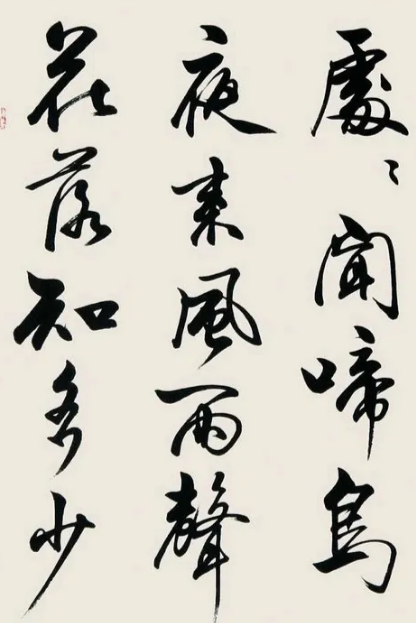 處〻聞啼鳥
夜來風雨聲
花落知多少